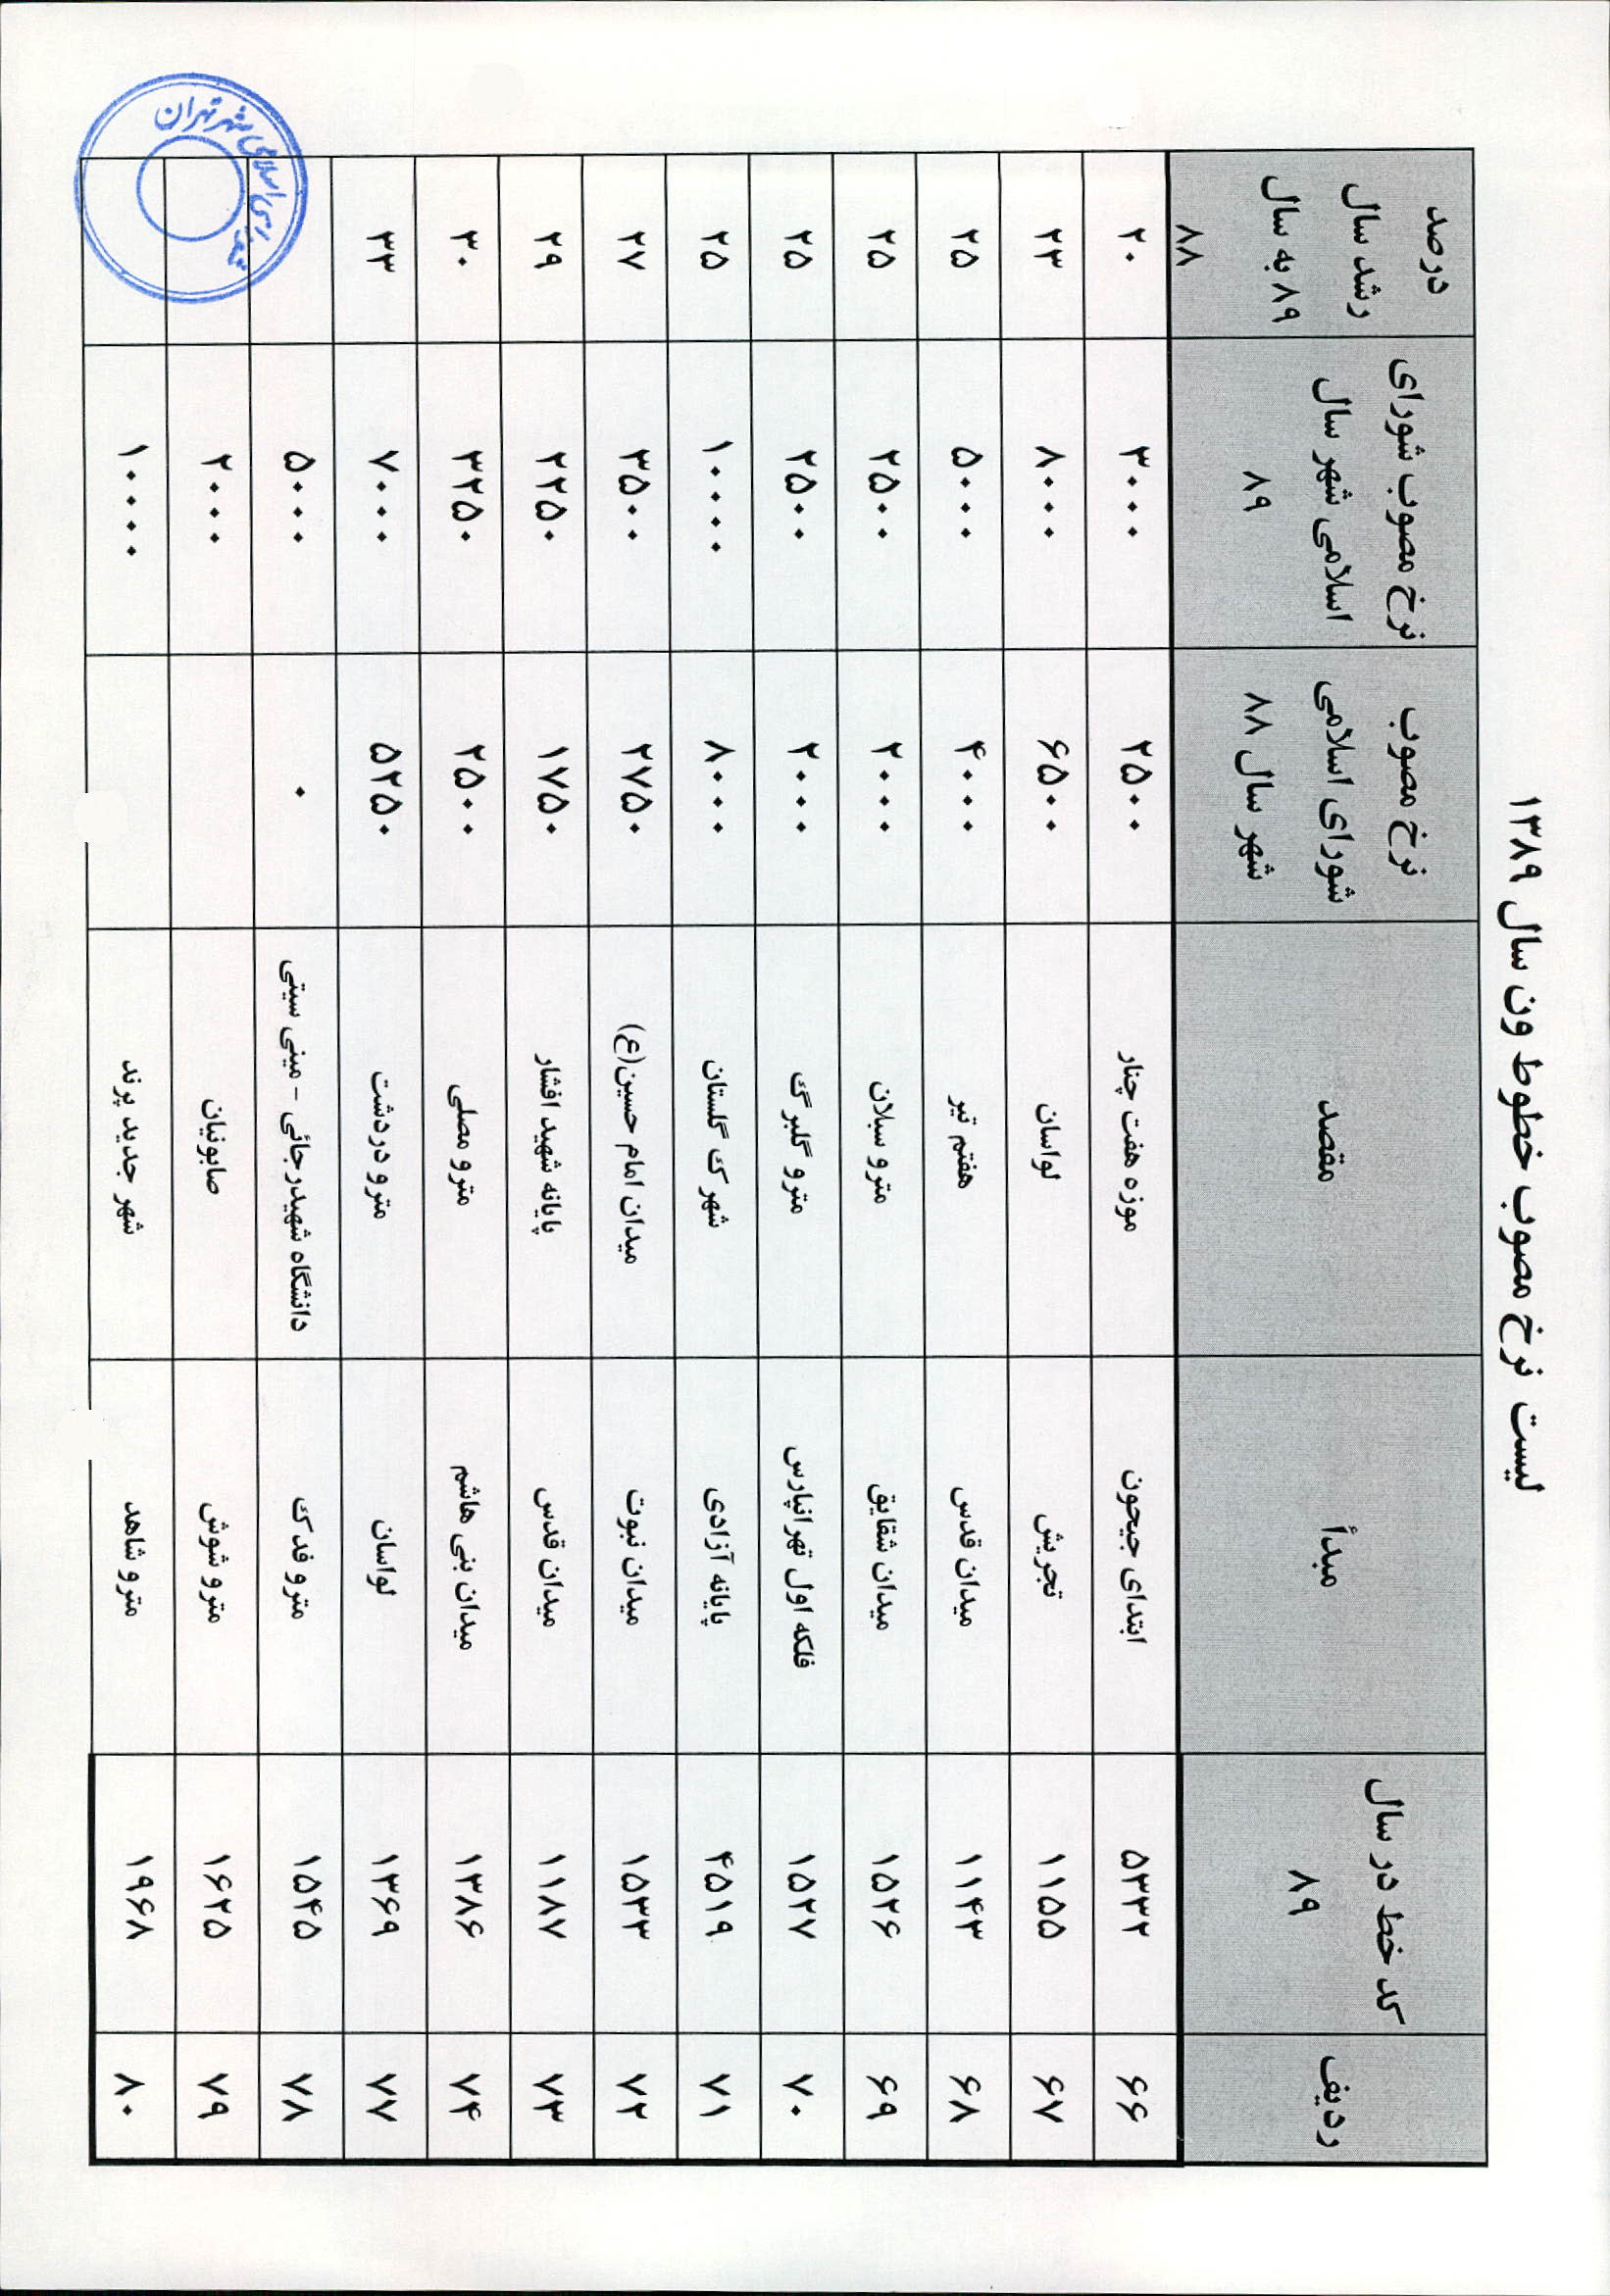 لیست نرخ مصوب خطوط ون سال ۱۳۸۹
ردیف | کد خط در سال ۸۹ | مبدأ | مقصد | نرخ مصوب شورای اسلامی شهر سال ۸۸ | نرخ مصوب شورای اسلامی شهر سال ۸۹ | درصد رشد سال ۸۹ به سال ۸۸
۶۶ | ۵۳۳۲ | ابتدای جیحون | موزه هفت چنار | ۲۵۰۰ | ۳۰۰۰ | ۲۰
۶۷ | ۱۱۵۵ | تجریش | لواسان | ۶۵۰۰ | ۸۰۰۰ | ۲۳
۶۸ | ۱۱۴۳ | میدان قدس | هفتم تیر | ۴۰۰۰ | ۵۰۰۰ | ۲۵
۶۹ | ۱۵۲۶ | میدان شقایق | مترو سبلان | ۲۰۰۰ | ۲۵۰۰ | ۲۵
۷۰ | ۱۵۲۷ | فلکه اول تهرانپارس | مترو گلبرگ | ۲۰۰۰ | ۲۵۰۰ | ۲۵
۷۱ | ۴۵۱۹ | پایانه آزادی | شهرک گلستان | ۸۰۰۰ | ۱۰۰۰۰ | ۲۵
۷۲ | ۱۵۳۳ | میدان نبوت | میدان امام حسین(ع) | ۲۷۵۰ | ۳۵۰۰ | ۲۷
۷۳ | ۱۱۸۷ | میدان قدس | پایانه شهید افشار | ۱۷۵۰ | ۲۲۵۰ | ۲۹
۷۴ | ۱۳۸۶ | میدان بنی هاشم | مترو مصلی | ۲۵۰۰ | ۳۲۵۰ | ۳۰
۷۷ | ۱۳۶۹ | لواسان | مترو دردشت | ۵۲۵۰ | ۷۰۰۰ | ۳۳
۷۸ | ۱۵۴۵ | مترو فدک | دانشگاه شهیدرجائی - مینی سیتی | ۰ | ۵۰۰۰
۷۹ | ۱۶۲۵ | مترو شوش | صابونیان | ۲۰۰۰
۸۰ | ۱۹۶۸ | مترو شاهد | شهر جدید پرند | ۱۰۰۰۰
شورای اسلامی شهر تهران